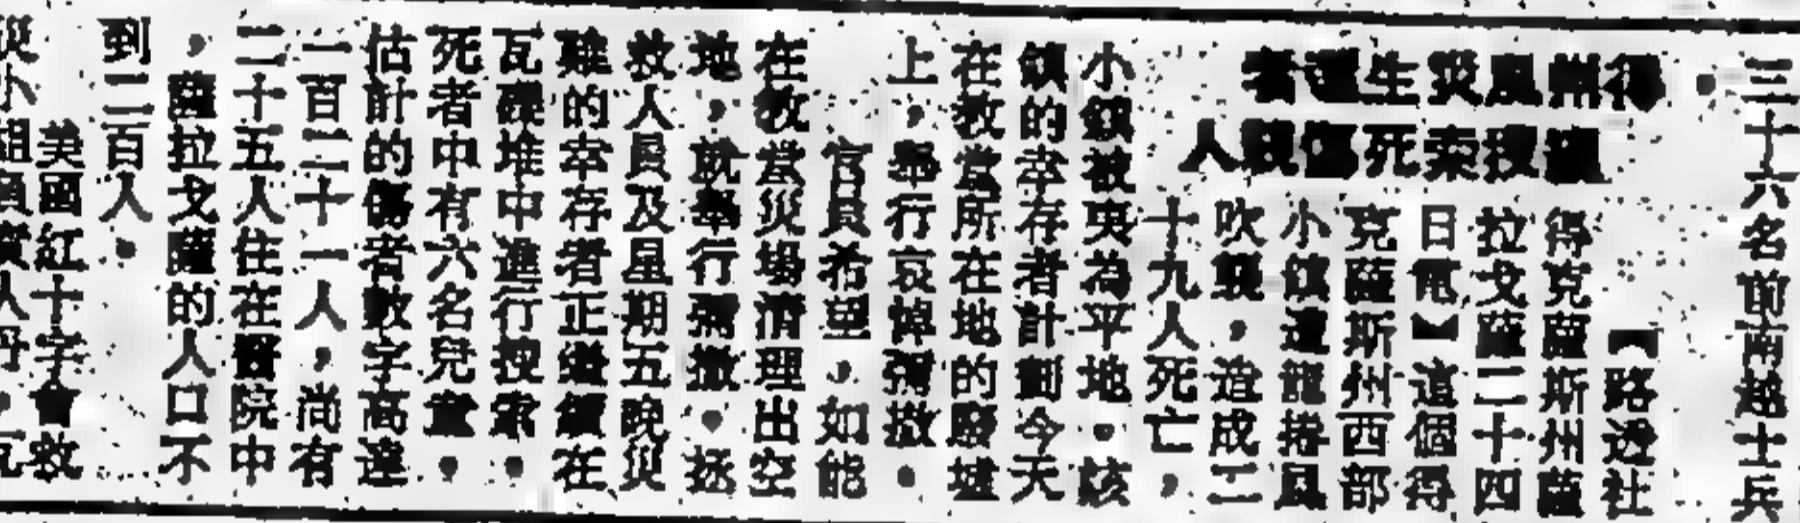 三十六名前南越士兵
得州風災生還者
續搜索死傷親人
【路透社
得克薩斯州薩
拉戈薩二十四
日電】這個得
克薩斯州西部
小鎮遭龍捲風
吹襲，造成二
十九人死亡，
小鎮被夷為平地。該
鎮的幸存者計劃今天
在教堂所在地的廢墟
上，舉行哀悼彌撒。
官員希望，如能
在教堂災場清理出空
地，就舉行彌撒。拯
救人員及星期五晚災
難的幸存者正繼續在
瓦礫堆中進行搜索。
死者中有六名兒童。
估計的傷者數字高達
一百二十一人，尚有
二十五人住在醫院中
，薩拉戈薩的人口不
到二百人。
美國紅十字會救
災小組負責人丹